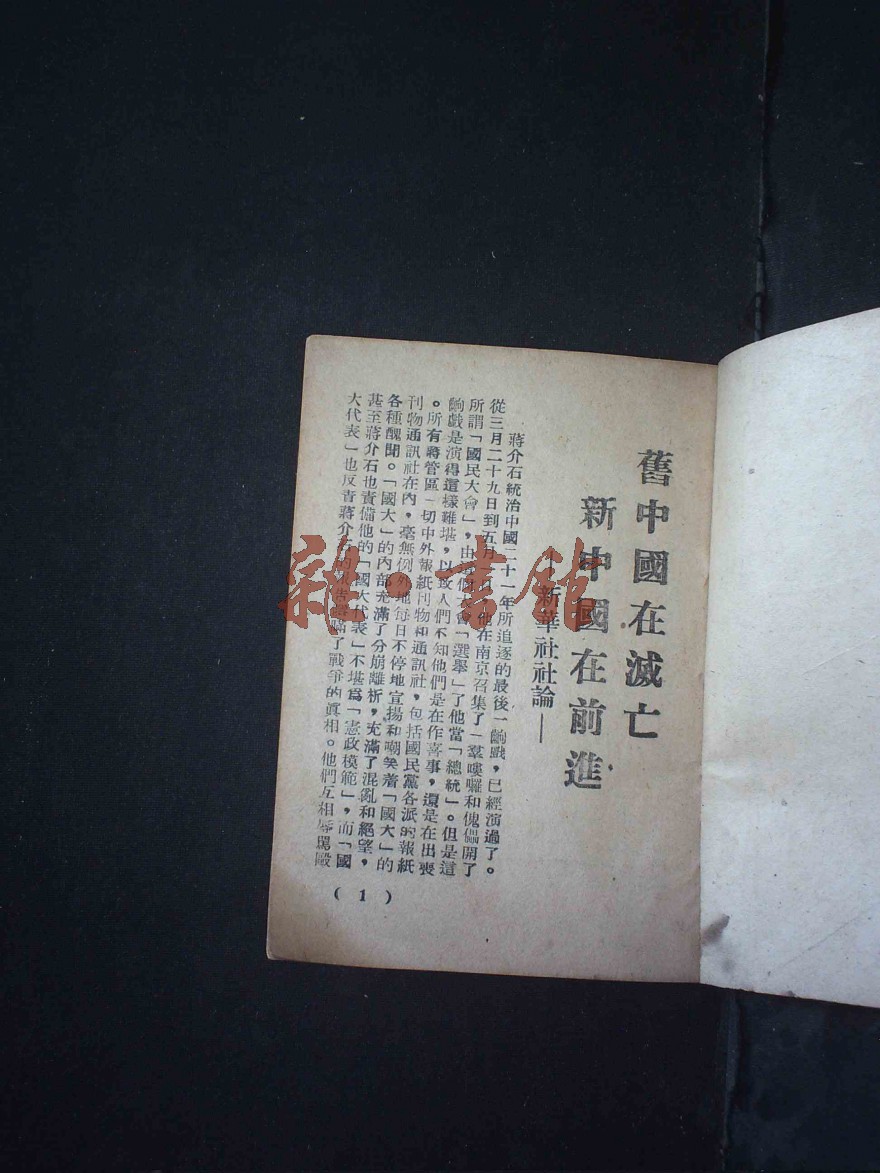 舊中國在滅亡
新中國在前進
新華社社論——
蔣介石統治中國二十一年所追逐的最後一齣戲,已經演過了。
從三月二十九日到五月一日,他在南京召集了一羣嘍囉和傀儡開了
所謂「國民大會」,由這個大會「選舉」了他當「總統」。但是這
齣戲是演得這樣難堪,以致人們不知他們是在作喜事,還是在出喪
。所有蔣管區一切中外報紙刊物和通訊社,包括國民黨各派的報紙
刊物通訊社在內,毫無例外地每日不停地宣揚和嘲笑着「國大」的
各種醜聞。「國大」的內部充滿了分崩離析,充滿了混亂和絕望,
甚至蔣介石也責備他的「國大代表」不堪爲「憲政模範」,而「國
大代表」也反責蔣介石的報告隱瞞了戰爭的眞相。他們互相辱罵毆
( 1 )
雜·書館